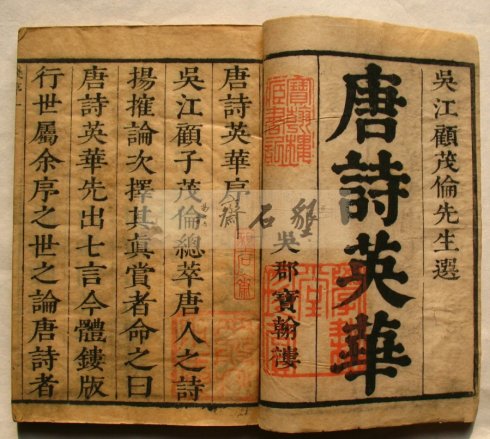 吳江顧茂倫先生選
唐詩英華
吳郡寶翰樓
唐詩英華序
吳江顧子茂倫總萃唐人之詩
揚搉論次擇其真賞者命之曰
唐詩英華先出七言今體鏤版
行世屬余序之世之論唐詩者